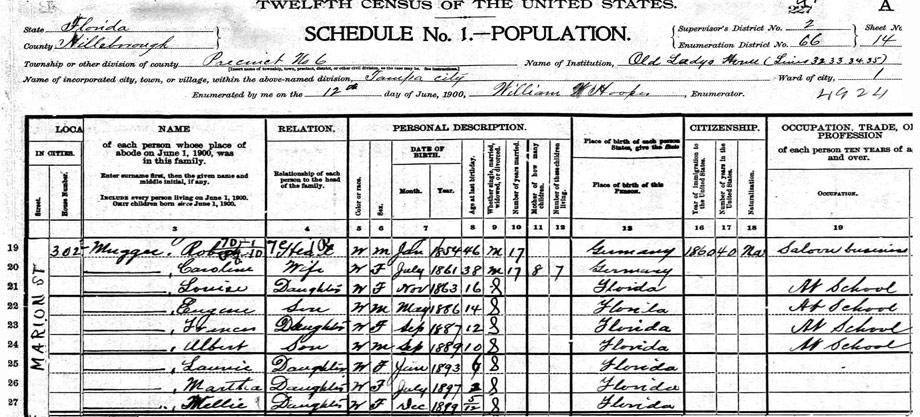 TWELFTH CENSUS OF THE UNITED STATES.
State Florida
County Hillsborough
SCHEDULE No. 1.—POPULATION.
Supervisor's District No. 2
Enumeration District No. 66
Sheet No.
14
A
Township or other division of county Precinct No 6
Name of Institution, Old Ladys Home (Lines 32 33 34 35)
Name of incorporated city, town, or village, within the above-named division, Tampa city
Ward of city, 1
Enumerated by me on the 12th day of June, 1900, William W Hooper, Enumerator.
4924
LOCA
IN CITIES.
Street.
House Number.
NAME
of each person whose place of
abode on June 1, 1900, was
in this family.
Enter surname first, then the given name and
middle initial, if any.
INCLUDE every person living on June 1, 1900.
OMIT children born since June 1, 1900.
RELATION.
Relationship of each
person to the head
of the family.
PERSONAL DESCRIPTION.
Color or race.
Sex.
DATE OF
BIRTH.
Month.
Year.
Age at last birthday.
Whether single, married,
widowed, or divorced.
Number of years married.
Mother of how many
children.
Number of these children
living.
Place of birth of each person
Place of birth of this
PERSON.
CITIZENSHIP.
Year of immigration to
the United States.
Number of years in the
United States.
Naturalization.
OCCUPATION, TRADE, O
PROFESSION
of each person TEN YEARS of a
and over.
OCCUPATION.
3 4 5 6 7 8 9 10 11 12 13 16 17 18 19
MARION ST
19 302 Mugge, Rob Head W M Jan 1854 46 M 17 Germany 1860 40 Na Saloon business
20 , Caroline Wife W F July 1861 38 M 17 8 7 Germany
21 , Louise Daughter W F Nov 1863 16 S Florida At School
22 , Eugene Son W M May 1886 14 S Florida At School
23 , Frances Daughter W F Sep 1887 12 S Florida At School
24 , Albert Son W M Sep 1889 10 S Florida At School
25 Daughter W F Jun 1893 6 S Florida
26 , Martha Daughter W F July 1897 2 S Florida
27 , Nellie Daughter W F Dec 1899 5/12 S Florida